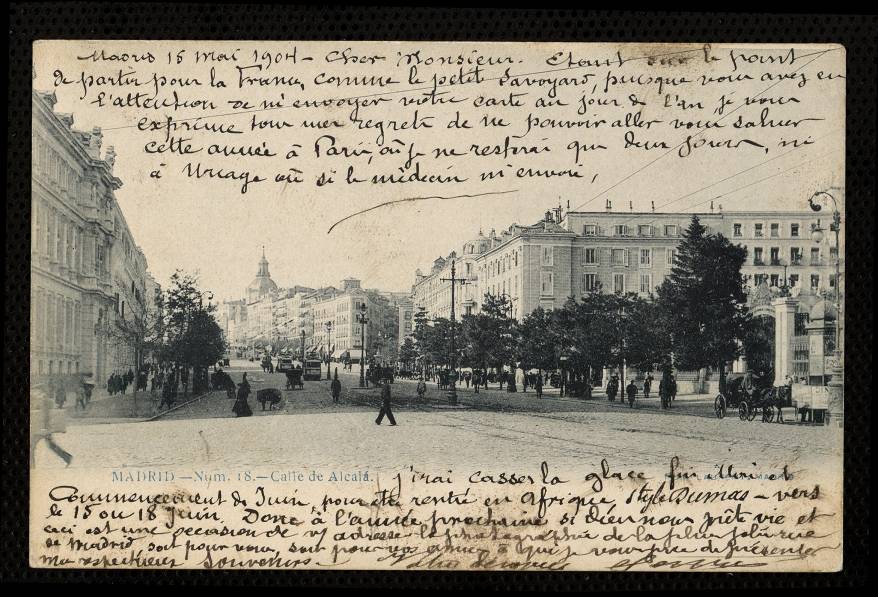 Madrid 15 Mai 1904 - Cher Monsieur. Etant sur le point
de partir pour la France, comme le petit Savoyard, puisque vous avez eu
l'attention de m'envoyer votre carte au jour de l'an je vous
exprime tous mes regrets de ne pouvoir aller vous saluer
cette année à Paris, où je ne resterai que deux jours, ni
à Uriage où si le médecin m'envoie,
MADRID.—Núm. 18.—Calle de Alcalá.
j'irai casser la glace fin Mai et
Commencement de Juin, pour être rentré en Afrique style Dumas - vers
le 15 ou 18 Juin. Donc à l'année prochaine si dieu nous prête vie et
ceci est une occasion de vs adresser la photographie de la plus jolie rue
de Madrid, soit pour vous, soit pour vos amis à qui je vous prie de présenter
mes respectueux souvenirs.